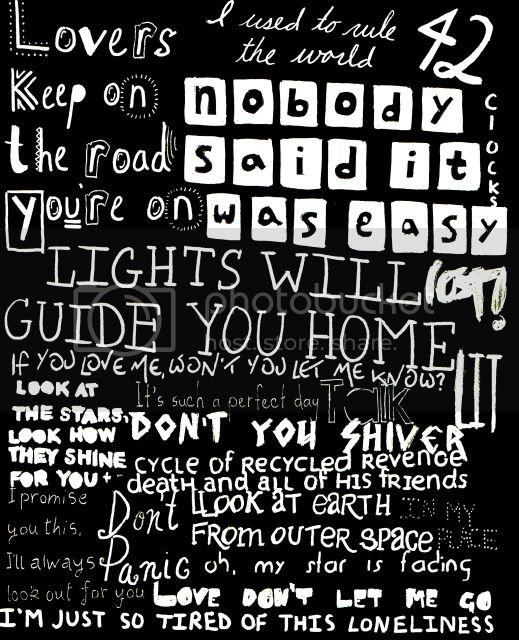 Lovers
Keep on
the road
you're on
I used to rule
the world
42
nobody
said it
was easy
CLOCKS
LIGHTS WILL
GUIDE YOU HOME
LOST!
photobucket
host. store. share.
IF YOU LOVE ME, WON'T YOU LET ME KNOW?
LOOK AT
THE STARS,
LOOK HOW
THEY SHINE
FOR YOU +
It's such a perfect day
Talk
DON'T YOU SHIVER
cycle of recycled revenge
death and all of his friends
I promise
you this,
I'll always
look out for you
Don't
Panic
LOOK AT EARTH
FROM OUTER SPACE
IN MY
PLACE
oh, my star is fading
LOVE DON'T LET ME GO
I'M JUST SO TIRED OF THIS LONELINESS